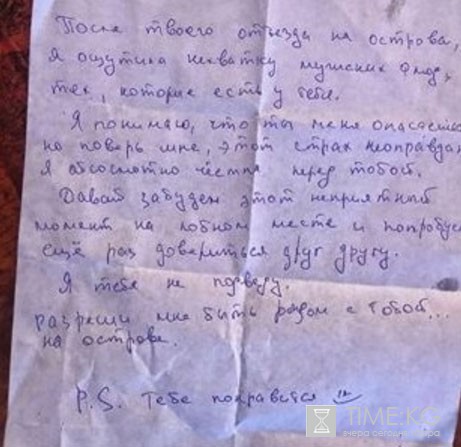 После твоего отъезда на острова,
я ощутила нехватку мужских флюд,
тех, которые есть у тебя.
Я понимаю, что ты меня опасаешься
но поверь мне, этот страх неоправдан
Я абсолютно честна перед тобой.
Давай забудем этот неприятный
момент на лобном месте и попробуем
ещё раз довериться друг другу.
Я тебя не подведу.
разреши мне быть рядом с тобой...
на острове.
P.S. Тебе понравится
TIME.KG
вчера сегодня завтра